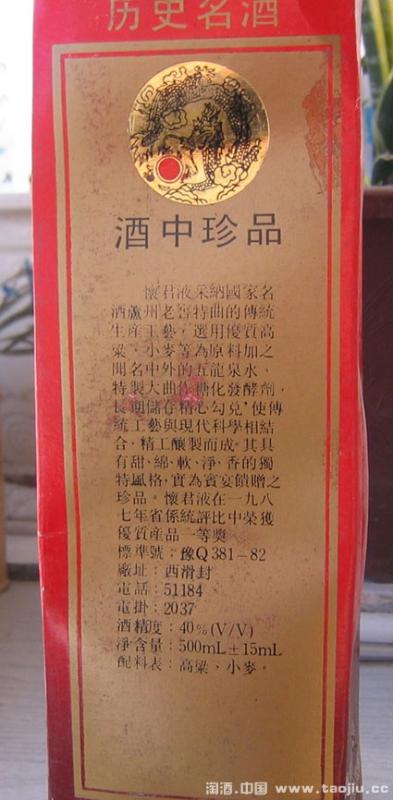 历史名酒
酒中珍品
懷君液采納國家名
酒蘆州老窖特曲的傳統
生産工藝，選用優質高
粱、小麥等為原料加之
聞名中外的五龍泉水、
特製大曲作糖化發酵劑，
長期儲存精心勾兑，使傳
統工藝與現代科學相結
合，精工釀製而成，其具
有甜、綿、軟、淨、香的獨
特風格，實為賓宴饋贈之
珍品。懷君液在一九八
七年省係統評比中榮獲
優質産品一等奬
標準號：豫Q381-82
廠址：西滑封
電話：51184
電掛：2037
酒精度：40%(V/V)
淨含量：500mL±15mL
配料表：高粱、小麥。
淘酒.中国 www.taojiu.cc